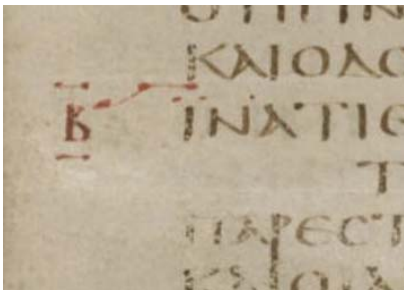 ΚΑΙΟΛΟ
Β
ΪΝΑΤΙΕ
Τ
ΠΑΡΕΣΤ